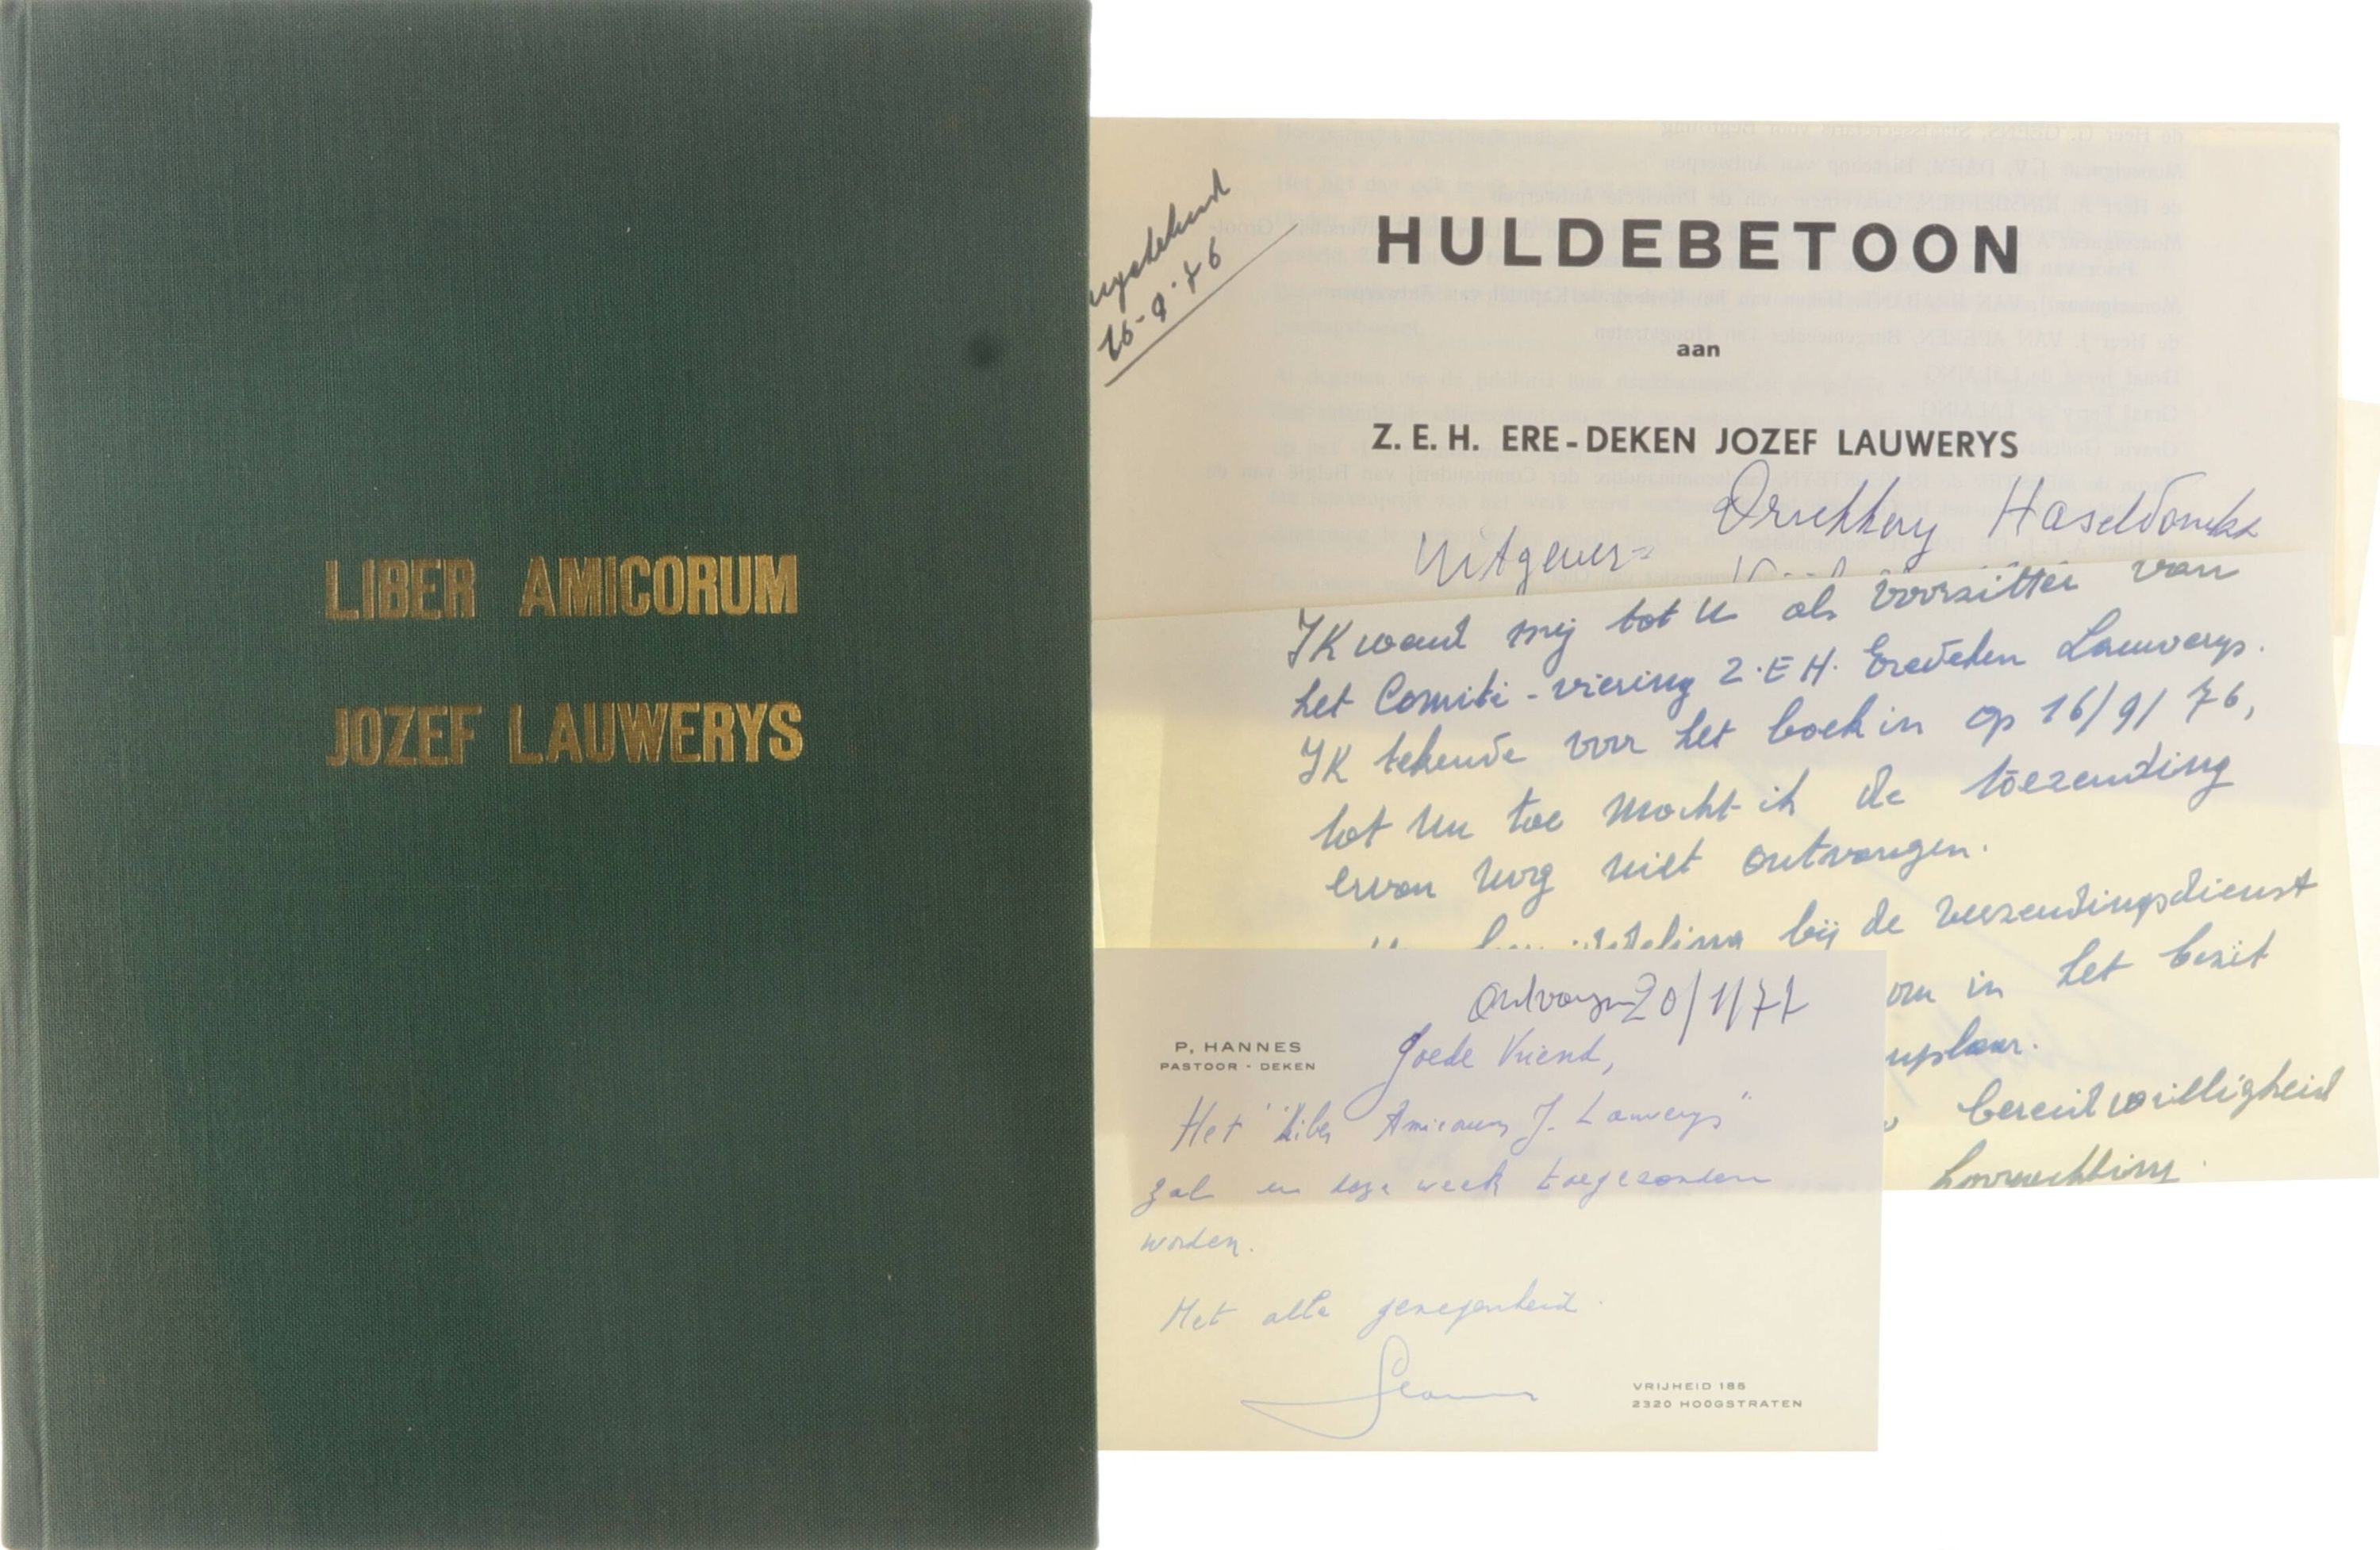 LIBER AMICORUM
JOZEF LAUWERYS
16-9-76
HULDEBETOON
aan
Z. E. H. ERE-DEKEN JOZEF LAUWERYS
Drukkery Haseldonckx
Uitgever=
IK wend mij tot U als voorzitter van
het Comité-viering Z.E H. Eredeken Lauwerys.
IK tekende voor het boek in op 16/9/76,
tot nu toe mocht ik de toezending
ervan nog niet ontvangen.
bij de verzendingsdienst
om in het bezit
bereidwilligheid
Ontvangen 20/1/77
P. HANNES
PASTOOR - DEKEN
Goede Vriend,
Het "Liber Amicorum J. Lauwerys"
zal in deze week toegezonden
worden.
Met alle genegenheid.
VRIJHEID 186
2320 HOOGSTRATEN